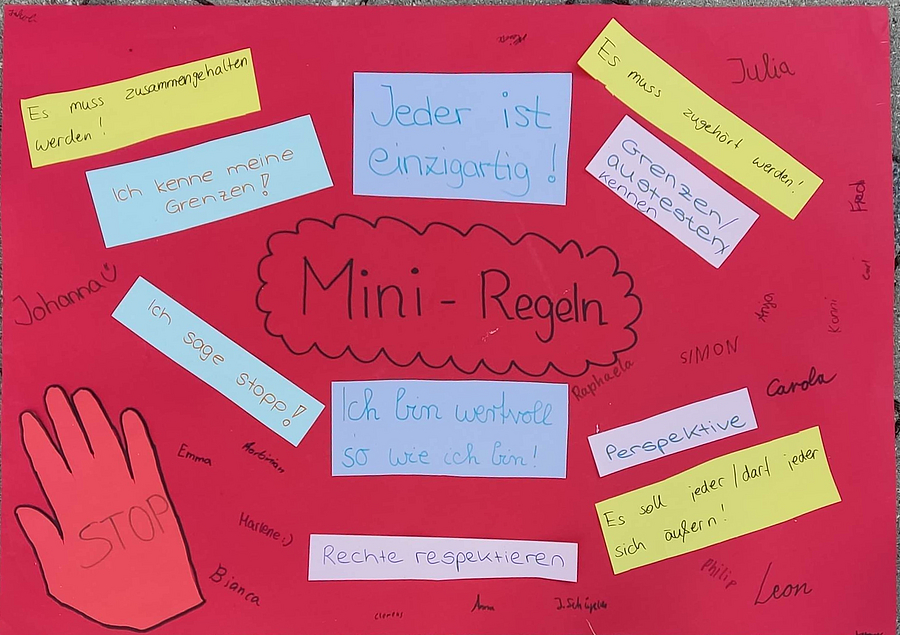 Es muss zusammengehalten
werden!
Ich kenne meine
Grenzen!
Jeder ist
einzigartig!
Es muss zugehört werden!
Julia
Grenzen/
austesten/
kennen
Fredi
Johanna
Mini-Regeln
Anja
Konni
SIMON
Raphaela
Carola
Ich sage stopp!
Ich bin wertvoll
so wie ich bin!
Perspektive
Es soll jeder/darf jeder
sich äußern!
Emma
Korbinian
STOP
Marlene :)
Rechte respektieren
Bianca
Philip
Leon
clemens
Anna